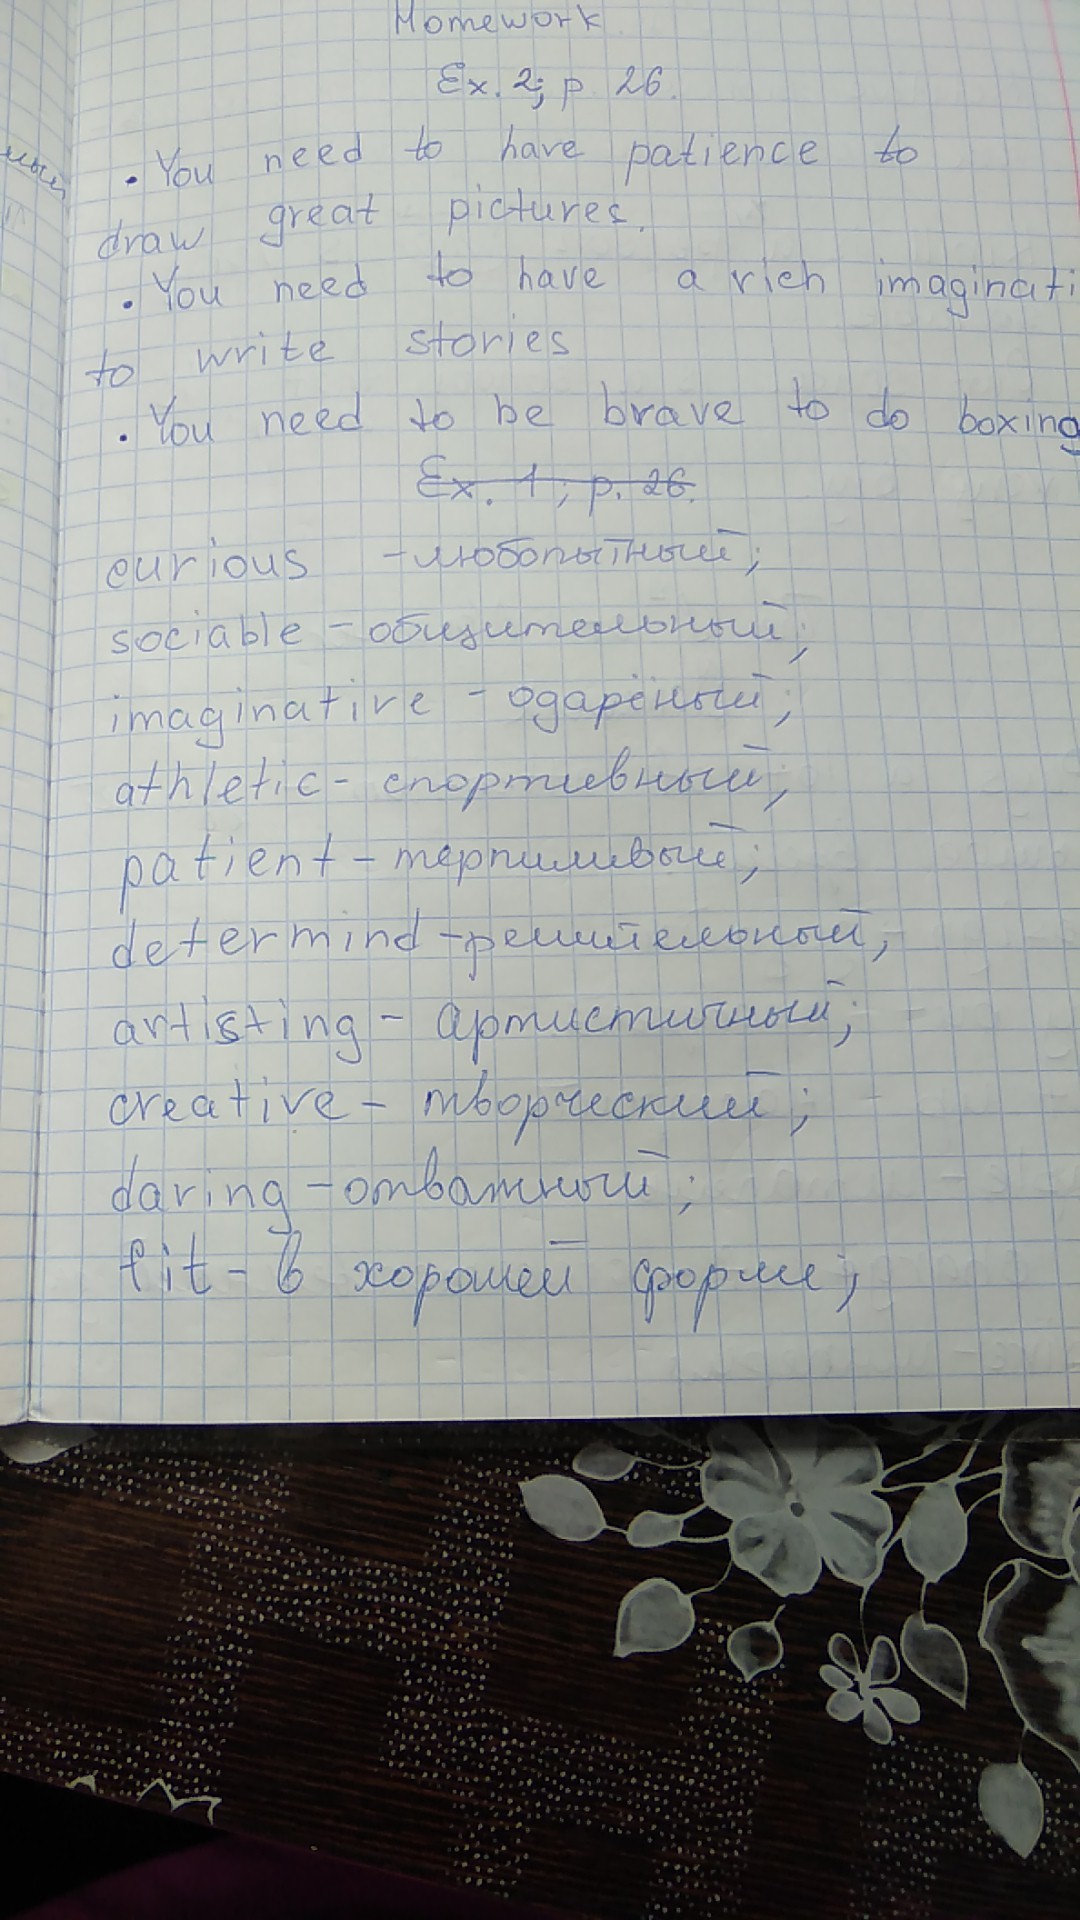 Homework
Ex. 2; p 26.
• You need to have patience to
draw great pictures.
• You need to have a rich imaginati
to write stories
• You need to be brave to do boxing
Ex. 1; p. 26.
curious - любопытный;
sociable - общительный;
imaginative - одарёный;
athletic - спортивный;
patient - терпиливый;
determind - решительный;
artisting - артистичный;
creative - творческий;
daring - отважный;
fit - в хорошей форме;